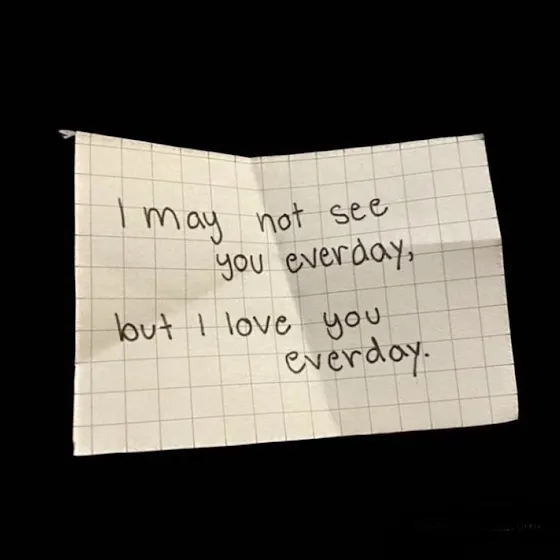 I may not see
you everday,
but I love you
everday.